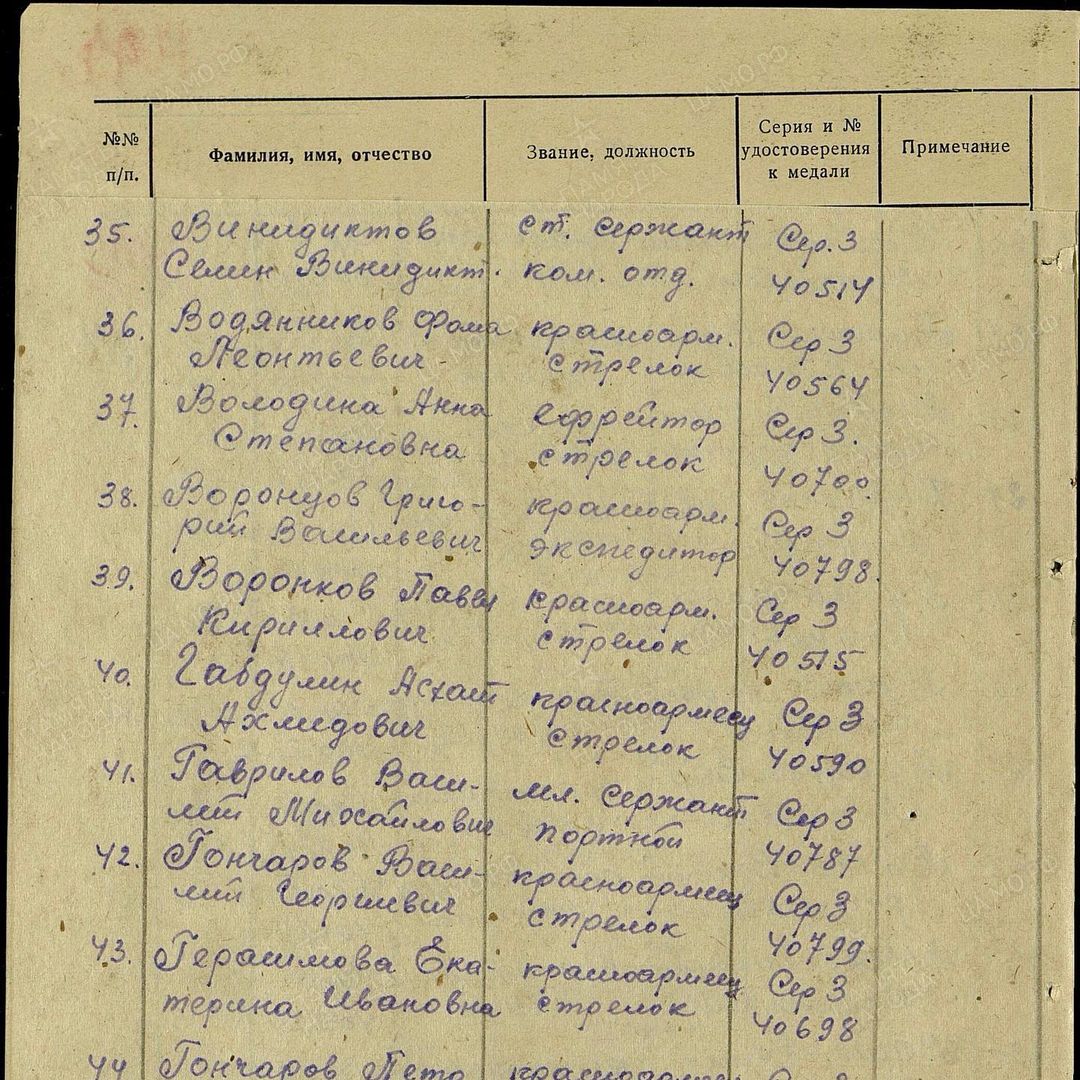 №№ п/п.
Фамилия, имя, отчество
Звание, должность
Серия и № удостоверения к медали
Примечание
35. Винидиктов ст. сержант Сер. З
Семен Винидикт. ком. отд. 40514
36. Водянников Фома красноарм. Сер З
Леонтьевич стрелок 40564
37. Володина Анна ефрейтор Сер З.
Степановна стрелок 40700
38. Воронцов Григо- красноарм. Сер З
рий Васильевич экспедитор 40798.
39. Воронков Павел красноарм. Сер З
Кириллович стрелок 40515
40. Габдулин Асхат красноармеец Сер З
Ахмидович стрелок 40590
41. Гаврилов Васи- мл. сержант Сер З
лий Михайлович портной 40787
42. Гончаров Васи- красноармеец Сер З
лий Георгиевич стрелок 40799.
43. Герасимова Ека- красноармеец Сер З
терина Ивановна стрелок 40698
44 Гончаров Петр